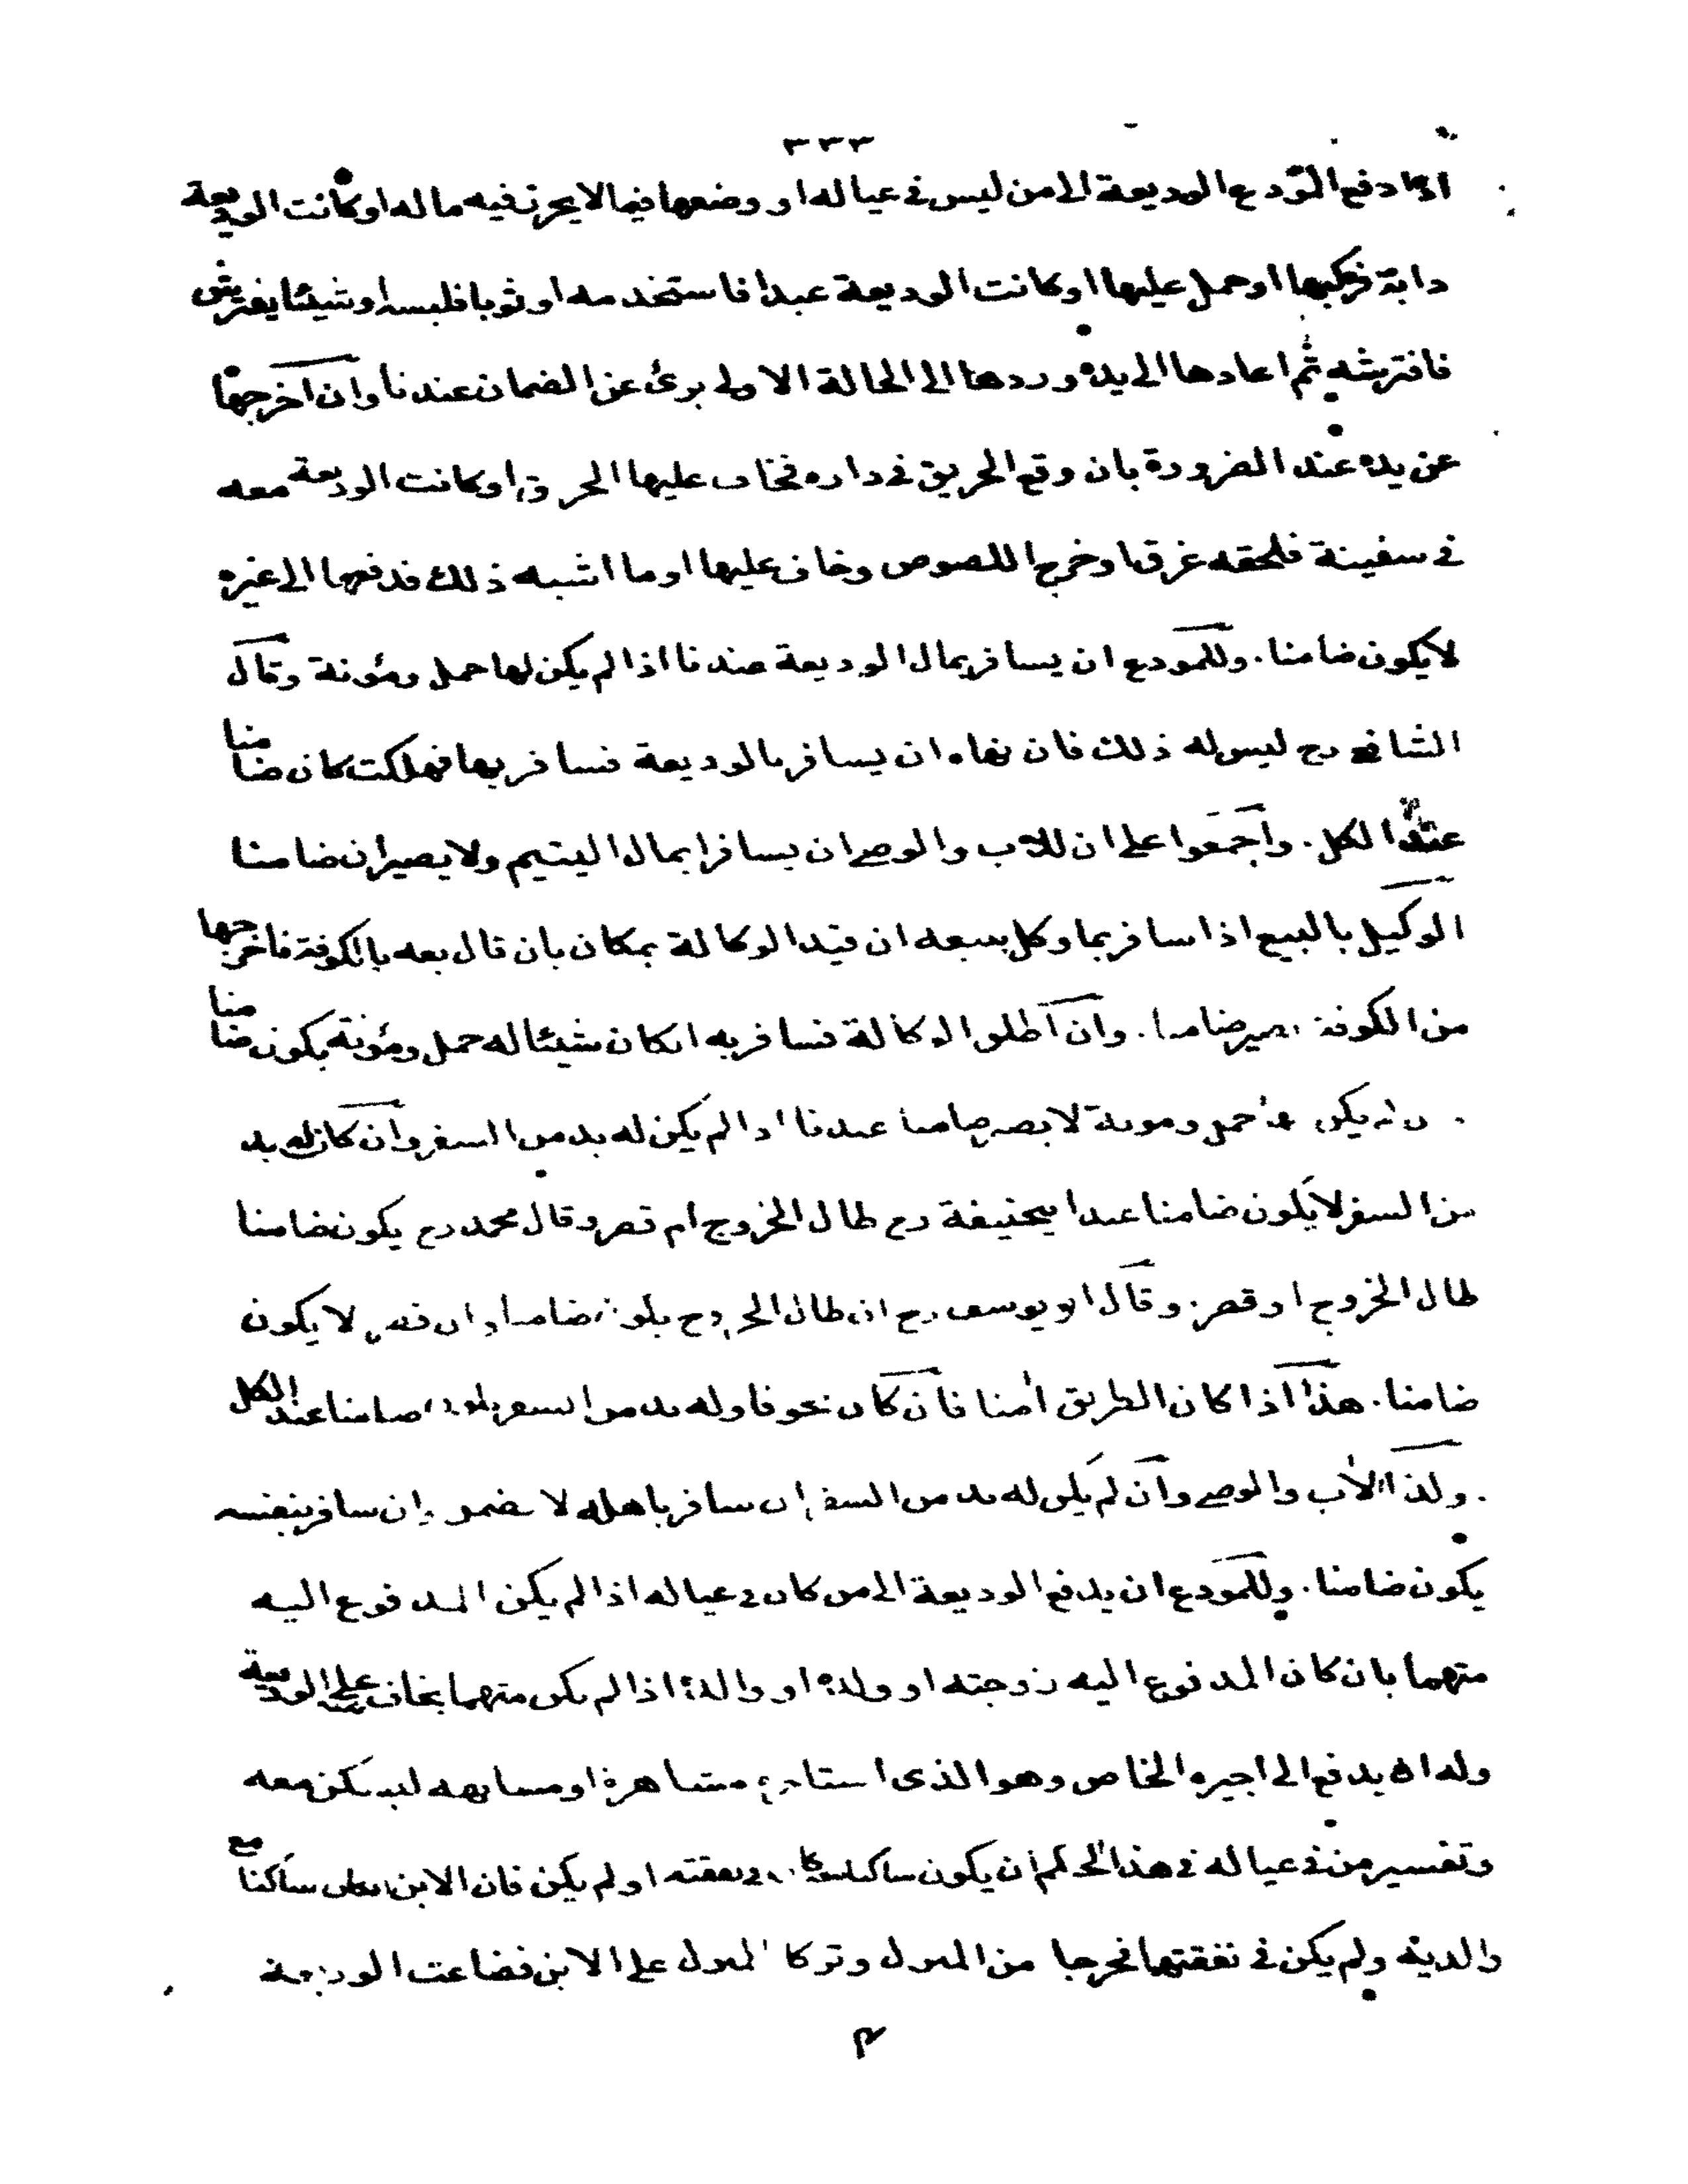 ٣٣٣
اذا دفع المودع الوديعة الى من ليس فى عياله او وضعها فيما لا يحرز فيه ماله او كانت الوديعة
دابة فركبها او حمل عليها او كانت الوديعة عبدا فاستخدمه او ثوبا فلبسه او شيئا يفترش
فافترشه ثم اعادها الى يده وردها الى الحالة الاولى برئ عن الضمان عندنا وان اخرجها
عن يده عند الضرورة بان وقع الحريق فى داره فخاف عليها الحرق او كانت الوديعة معه
فى سفينة فلحقه غرق او خرج اللصوص وخاف عليها او ما اشبه ذلك فدفعها الى غيره
لا يكون ضامنا. وللمودع ان يسافر بمال الوديعة عندنا اذا لم يكن لها حمل ومؤنة وقال
الشافعى رح ليس له ذلك فان نهاه ان يسافر بالوديعة فسافر بها فهلكت كان ضامنا
عند الكل. واجمعوا على ان للاب والوصى ان يسافرا بمال اليتيم ولا يصيران ضامنا
الوكيل بالبيع اذا سافر بما وكل ببيعه ان قيد الوكالة بمكان بان قال بعه بالكوفة فاخرجها
من الكوفة يصير ضامنا. وان اطلق الوكالة فسافر به ان كان شيئا له حمل ومؤنة يكون ضامنا
وان لم يكن له حمل ومؤنة لا يصير ضامنا عندنا اذا لم يكن له بد من السفر وان كان له بد
من السفر لا يكون ضامنا عند ابيحنيفة رح طال الخروج ام قصر وقال محمد رح يكون ضامنا
طال الخروج او قصر. وقال ابو يوسف رح ان طال الخروج يكون ضامنا وان قصر لا يكون
ضامنا. هذا اذا كان الطريق امنا فان كان مخوفا وله بد من السفر يكون ضامنا عند الكل
وكذا الاب والوصى وان لم يكن له بد من السفر ان سافر باهله لا يضمن وان سافر بنفسه
يكون ضامنا. وللمودع ان يدفع الوديعة الى من كان فى عياله اذا لم يكن المدفوع اليه
متهما بان كان المدفوع اليه زوجته او ولده او والده اذا لم يكن متهما يخاف على الوديعة
وله ان يدفع الى اجيره الخاص وهو الذى استاجره مشاهرة او مسانهة ليسكن معه
وتفسير من فى عياله فى هذا الحكم ان يكون ساكنا معه كان فى نفقته او لم يكن فان الابن اذا كان ساكنا مع
والديه ولم يكن فى نفقتهما فخرجا من المنزل وتركا المنزل على الابن فضاعت الوديعة